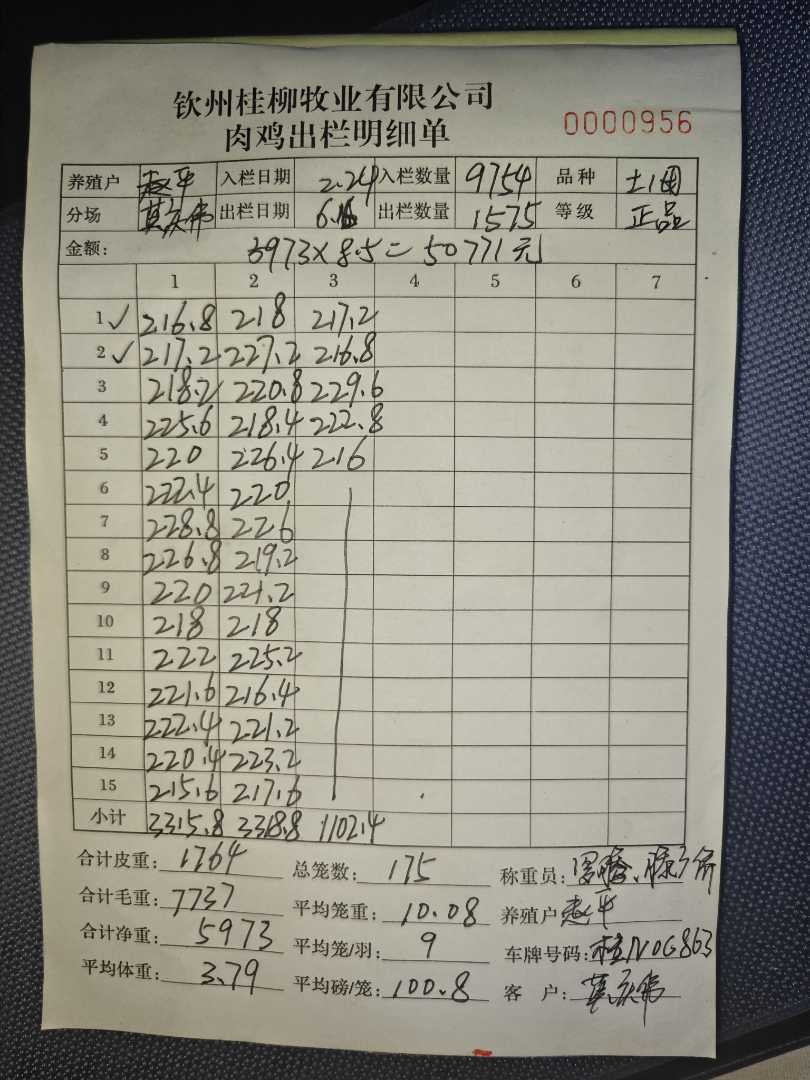 钦州桂柳牧业有限公司
肉鸡出栏明细单 0000956
养殖户 赵平 入栏日期 2.24 入栏数量 9754 品种 土1
分场 莫庆伟 出栏日期 6. 出栏数量 1575 等级 正品
金额: 5973×8.5=50771元
1 2 3 4 5 6 7
1✓ 216.8 218 217.2
2✓ 217.2 227.2 216.8
3 218.2 220.8 229.6
4 225.6 218.4 222.8
5 220 226.4 216
6 222.4 220
7 228.8 226
8 226.8 219.2
9 220 221.2
10 218 218
11 222 225.2
12 221.6 216.4
13 222.4 221.2
14 220.4 223.2
15 215.6 217.6
小计 3315.8 3318.8 1102.4
合计皮重: 1764 总笼数: 175 称重员:
合计毛重: 7737 平均笼重: 10.08 养殖户 赵平
合计净重: 5973 平均笼/羽: 9 车牌号码: 桂N0G863
平均体重: 3.79 平均磅/笼: 100.8 客 户: 莫庆伟